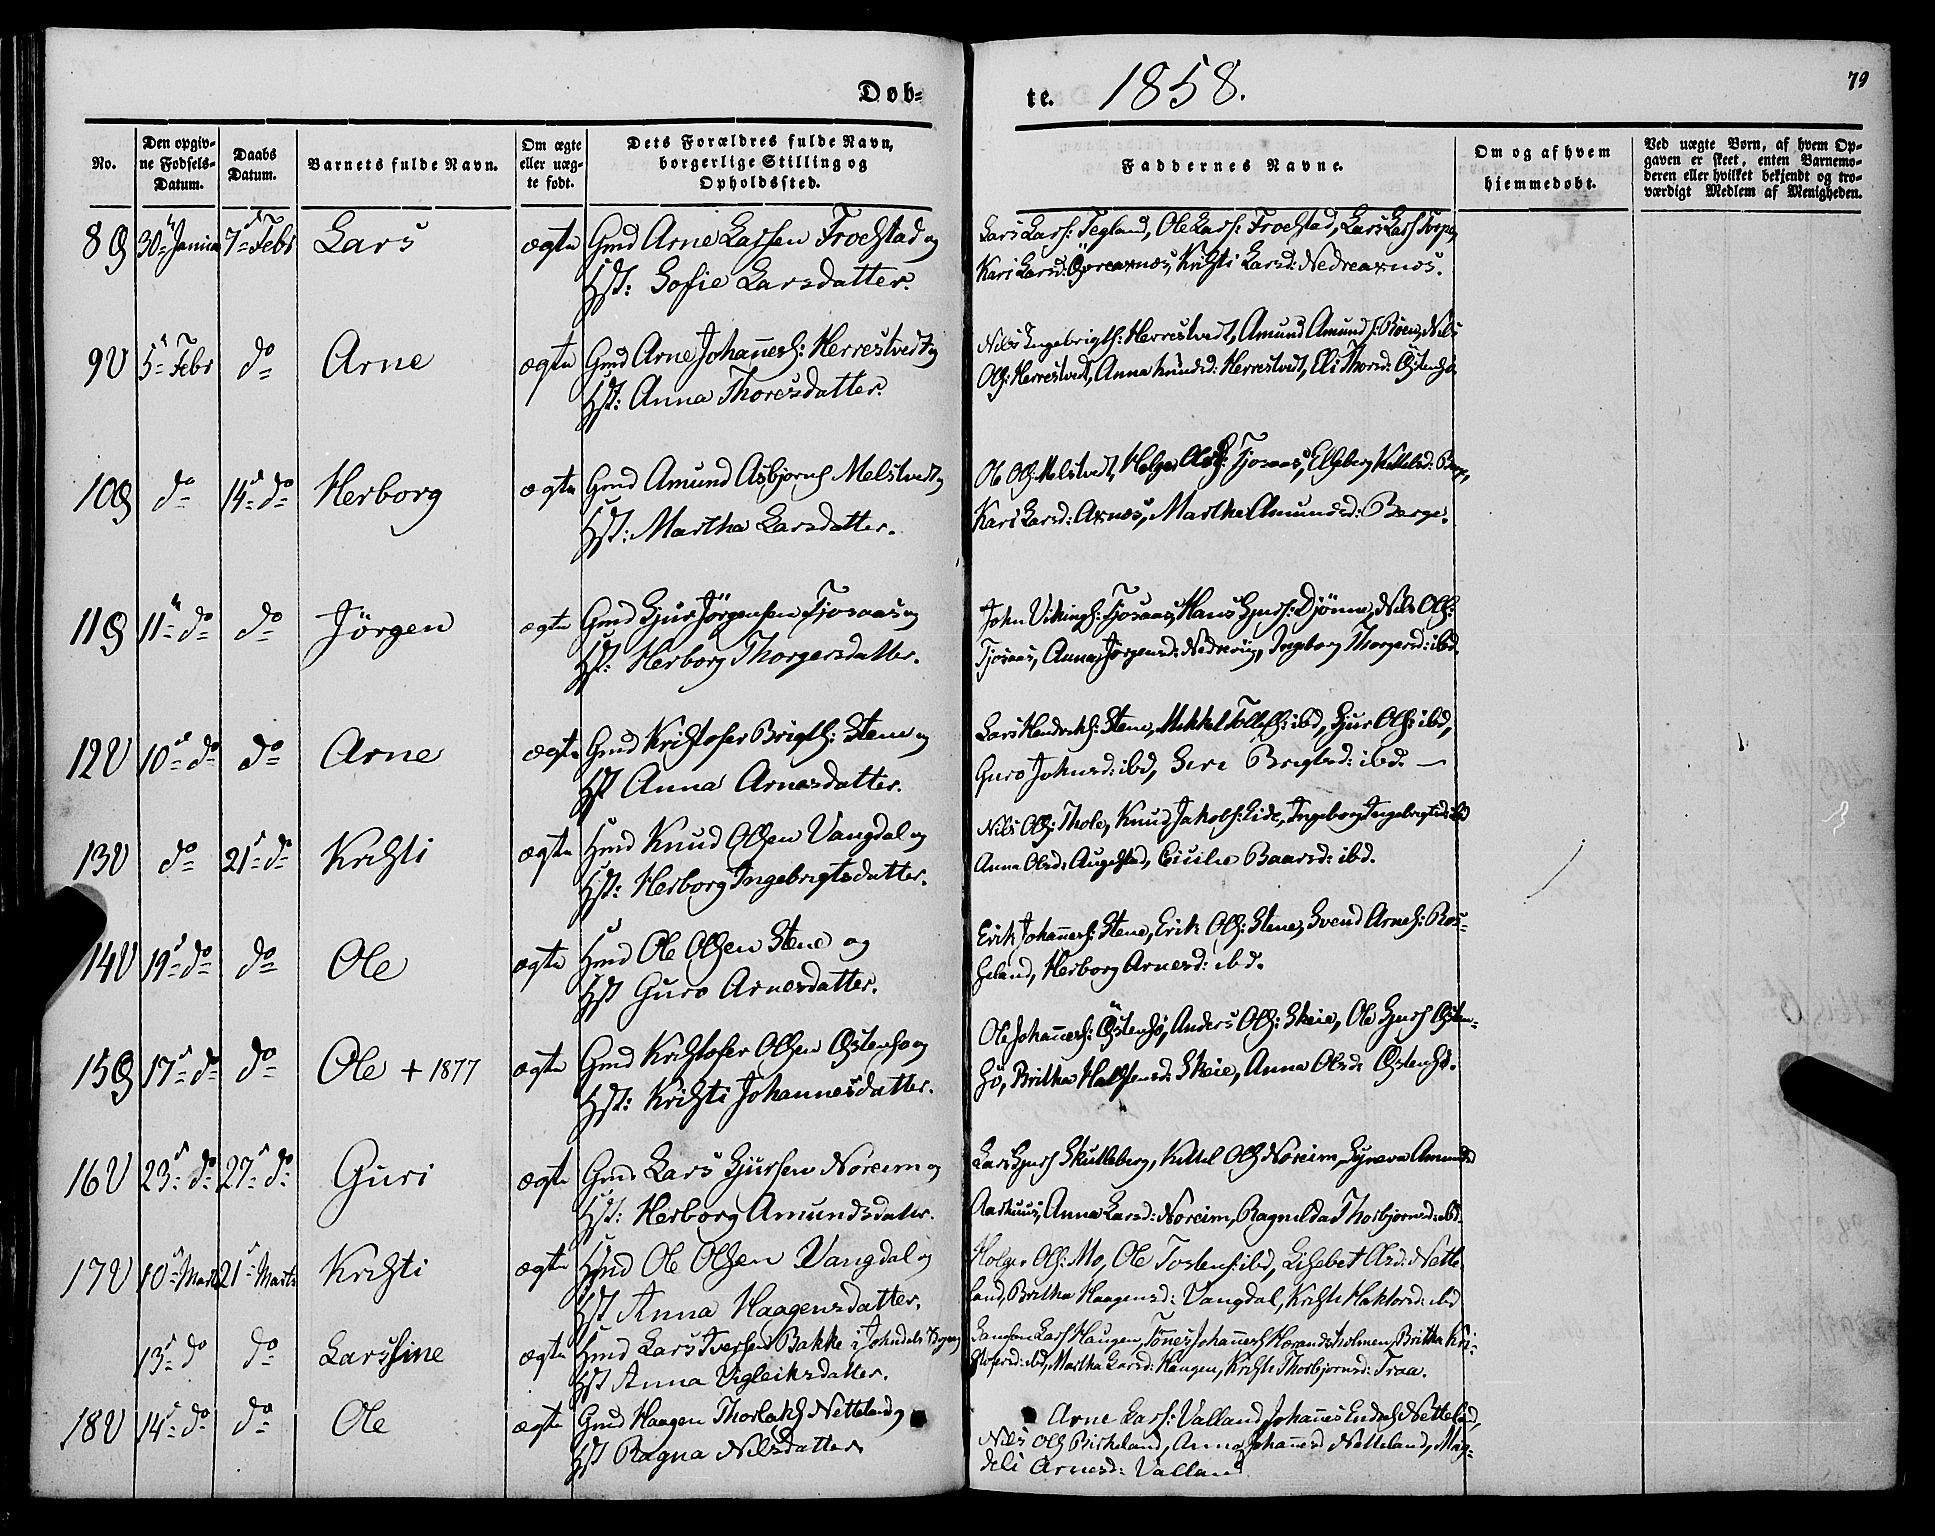 Døb=
te. 1858.
79
No.
Den opgiv-
ne Fødsels-
Datum.
Daabs
Datum.
Barnets fulde Navn.
Om ægte
eller uæg-
te født.
Dets Forældres fulde Navn,
borgerlige Stilling og
Opholdssted.
Faddernes Navne.
Om og af hvem
hjemmedøbt.
Ved uægte Børn, af hvem Op-
gaven er skeet, enten Barnemo-
deren eller hvilket bekjendt og tro-
værdigt Medlem af Menigheden.
8 Ø 30te Januar 7de Febr Lars ægte Gmd Arne Larsen Trodstad og
Hst: Sofie Larsdatter.
Lars Lars: Tegland, Ole Lars: Trodstad, Lars Lars
Kari Larsd: Øvrearnæs, Kristi Larsd: Nedrearnæs.
9 V 5te Febr do Arne ægte Gmd Arne Johannes: Herrestvedt og
Hst: Anna Thoresdatter.
Nils Ingebrigts: Herrestvedt, Amund Amunds: Røen, Nils
Ols: Herrestvedt, Anna Knudsd: Herrestvedt, Eli Thorsd: Østensø
10 Ø do 14de do Herborg ægte Gmd Amund Asbjørns Melstvedt og
Hst: Martha Larsdatter.
Ole Ols: Melstvedt, Helge Ols: Tjosaas, Elseberg Kettelsd: Berge,
Kari Larsd: Arnæs, Martha Amundsd: Berge.
11 Ø 11te do do Jörgen ægte Gmd Sjur Jørgensen Tjosaas og
Hst: Herborg Thorgersdatter.
John Vikings: Tjosaas, Hans Sjurs: Djönne, Nils Ols:
Tjosaas, Anna Jørgensd: Ingeborg Thorgersd: ibd.
12 V 10de do do Arne ægte Gmd Kristofer Brigts: Stene og
Hst Anna Arnesdatter.
Lars Hendriks: Stene, Mikkel Tollefs: ibd, Sjur Ols: ibd,
Guro Johnsd: ibd, Siri Brigtsd: ibd. —
13 V do 21de do Kristi ægte Hmd Knud Olsen Vangdal og
Hst: Herborg Ingebrigtsdatter.
Nils Ols: Thole, Knud Jakobs: Lide, Ingeborg Ingebrigtsd: ibd
Anna Olsd: Augestad, Cicilie Baarsd: ibd.
14 V 19de do do Ole ægte Hmd Ole Olsen Stene og
Hst Guro Arnesdatter.
Erik Johannes: Stene, Erik Ols: Stene, Svend Arnes: Ros-
seland, Herborg Arnesd: ibd.
15 Ø 17de do do Ole + 1877 ægte Gmd Kristofer Olsen Østensø og
Hst: Kristi Johannesdatter.
Ole Johannes: Østensjø, Anders Ols: Skeie, Ole Sjurs Østen-
sø, Britha Halstensd: Skeie, Anna Olsd: Østensø.
16 V 23de do 27de do Guri ægte Gmd Lars Sjursen Noreim og
Hst: Herborg Amundsdatter.
Lars Sjurs Skutleberg, Kittel Ols Noreim, Synneva Amundsd
Aarhuus, Anna Larsd: Noreim, Ragnilda Thorbjørnsd: ibd.
17 V 10de Marts 21de Marts Kristi ægte Hmd Ole Olsen Vangdal og
Hst Anna Haagensdatter.
Holger Ols: Mo, Ole Tostens: ibd, Lisebet Olsd: Nette-
land, Britha Haagensd: Vangdal, Kristi Haktorsd: ibd
13de do do Larssine ægte Hmd Lars Iversen Bakke i Jondals Sogn og
Hst Anna Vigleiksdatter.
Samson Lars Haugen, Tönes Johannes Hærandsholmen, Britha Kri-
stofersd: ibd, Martha Larsd: Haugen, Kristi Thorbjørnsd: Traa.
18 V 14de do do Ole ægte Gmd Haagen Thorlaks Netteland og
Hst Ragna Nilsdatter.
Arne Lars: Valland, Johannes Endres Netteland,
Nils Ols Birkeland, Anna Johannesd Netteland, Mag-
deli Arnesd: Valland